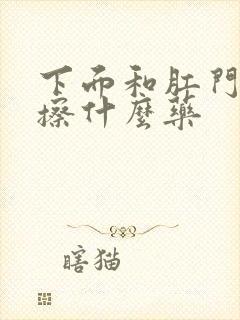 下而和肛門
擦什麼藥
瞎猫